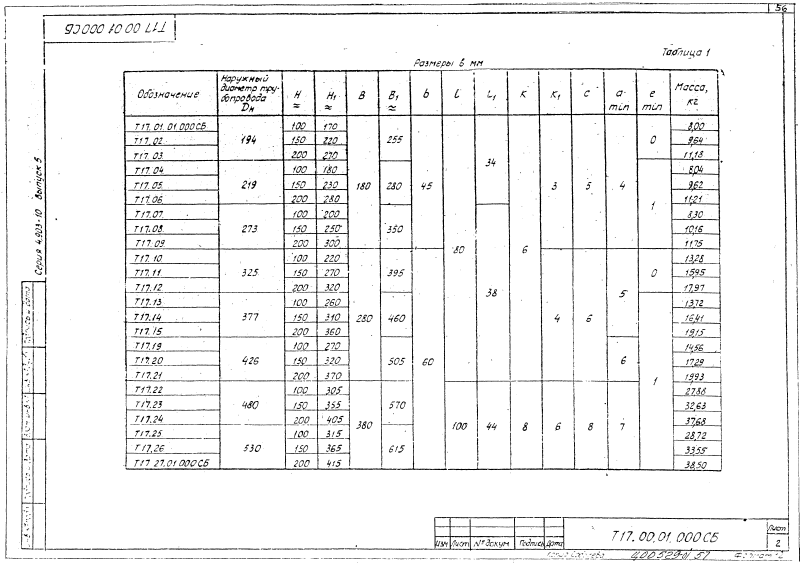 56
Т17 00 01 000СБ
Таблица 1
Размеры в мм
Обозначение Наружный диаметр трубопровода Dн H ≈ H₁ ≈ B B₁ ≈ b l L₁ K K₁ c a min e min Масса, кг
Т17.01.01.000СБ 194 100 170 180 255 45 80 34 6 3 5 4 0 8,00
Т17.02 150 220 9,64
Т17.03 200 270 11,18
Т17.04 219 100 180 280 1 8,04
Т17.05 150 230 9,62
Т17.06 200 280 11,21
Т17.07 273 100 200 350 38 8,30
Т17.08 150 250 10,16
Т17.09 200 300 11,75
Т17.10 325 100 220 280 395 60 4 6 5 0 13,28
Т17.11 150 270 15,95
Т17.12 200 320 17,97
Т17.13 377 100 260 460 1 13,72
Т17.14 150 310 16,41
Т17.15 200 360 19,15
Т17.19 426 100 270 505 6 14,56
Т17.20 150 320 17,29
Т17.21 200 370 19,93
Т17.22 480 100 305 380 570 100 44 8 6 8 7 27,88
Т17.23 150 355 32,63
Т17.24 200 405 37,68
Т17.25 530 100 315 615 28,72
Т17.26 150 365 33,55
Т17.27.01.000СБ 200 415 38,50
Серия 4.903-10 Выпуск 5
Изм Лист № докум Подпись Дата
Т17.00.01.000СБ
Лист
2
57